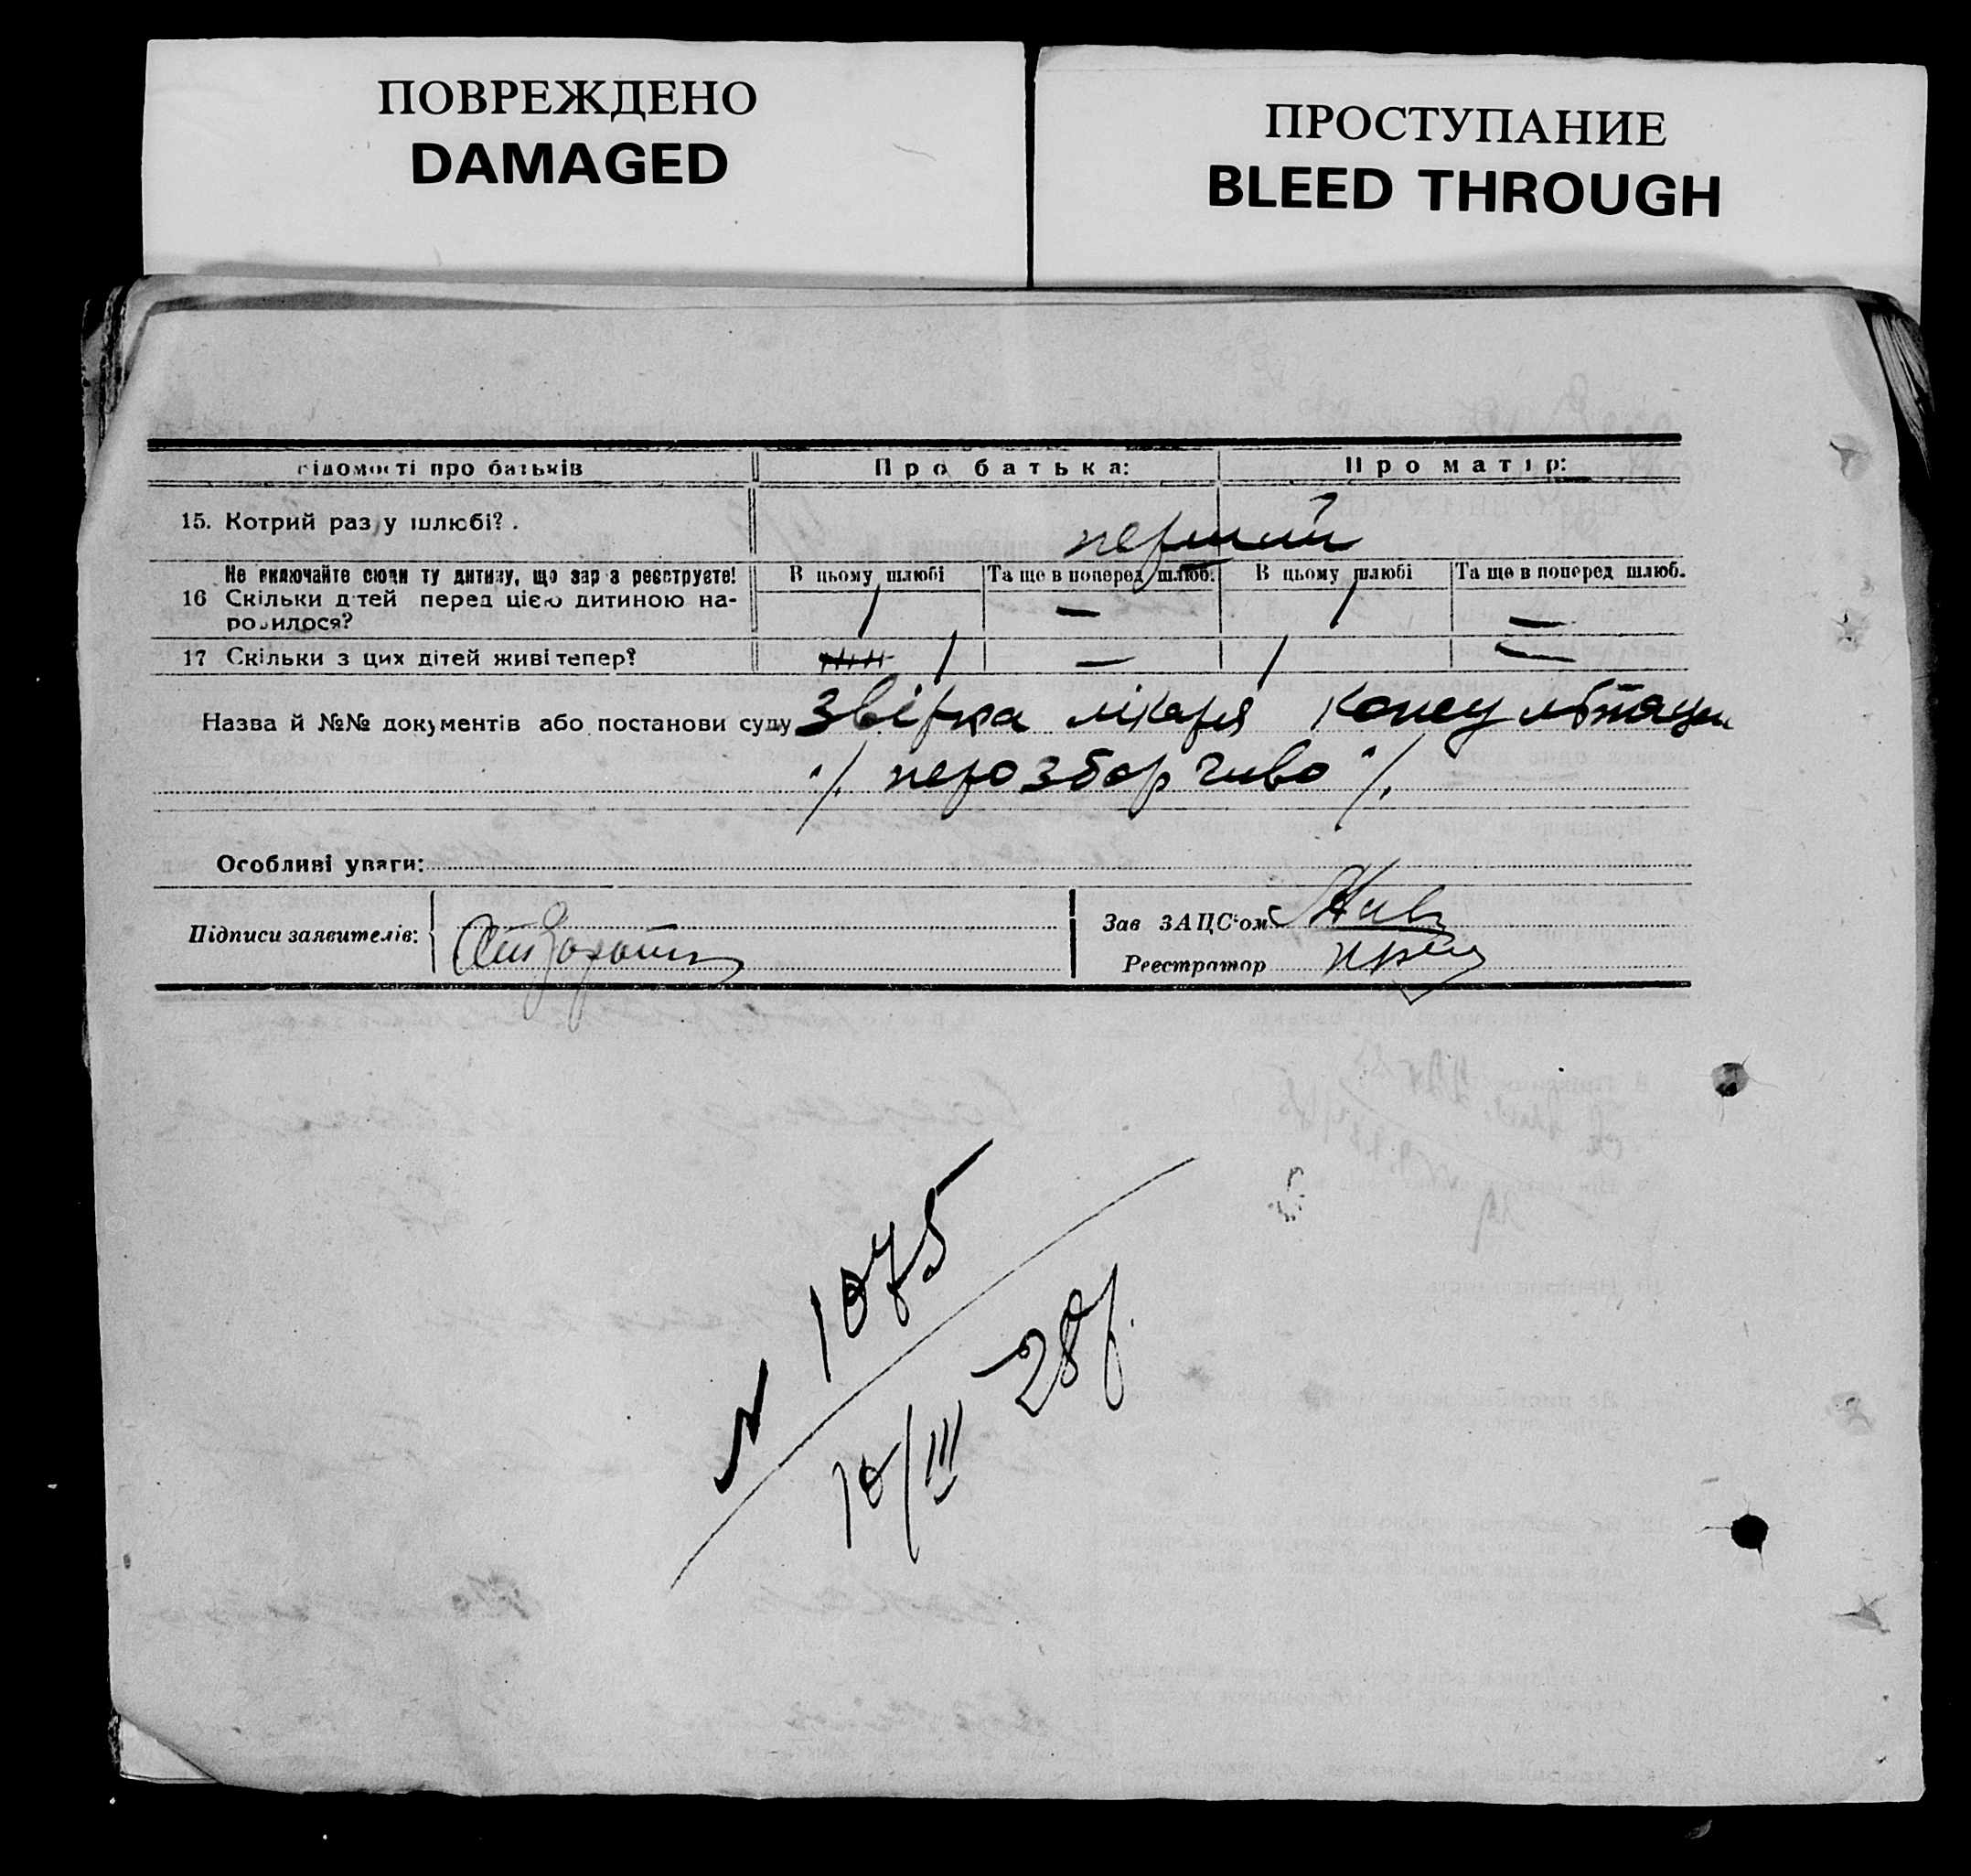 ПОВРЕЖДЕНО
DAMAGED
ПРОСТУПАНИЕ
BLEED THROUGH
відомості про батьків Про батька: Про матір:
15. Котрий раз у шлюбі? . перший
Не включайте сюди ту дитину, що зараз реєструєте! В цьому шлюбі Та ще в поперед шлюб. В цьому шлюбі Та ще в поперед шлюб.
16 Скільки дітей перед цією дитиною на- / — / —
родилося?
17 Скільки з цих дітей живі тепер? / — / —
Назва й №№ документів або постанови суду звірка лікаря консультации
·/. нерозборчиво ·/.
Особливі уваги:
Підписи заявителів:
Зав ЗАЦС'ом
Реєстратор
N 1075
10/III 28 р.